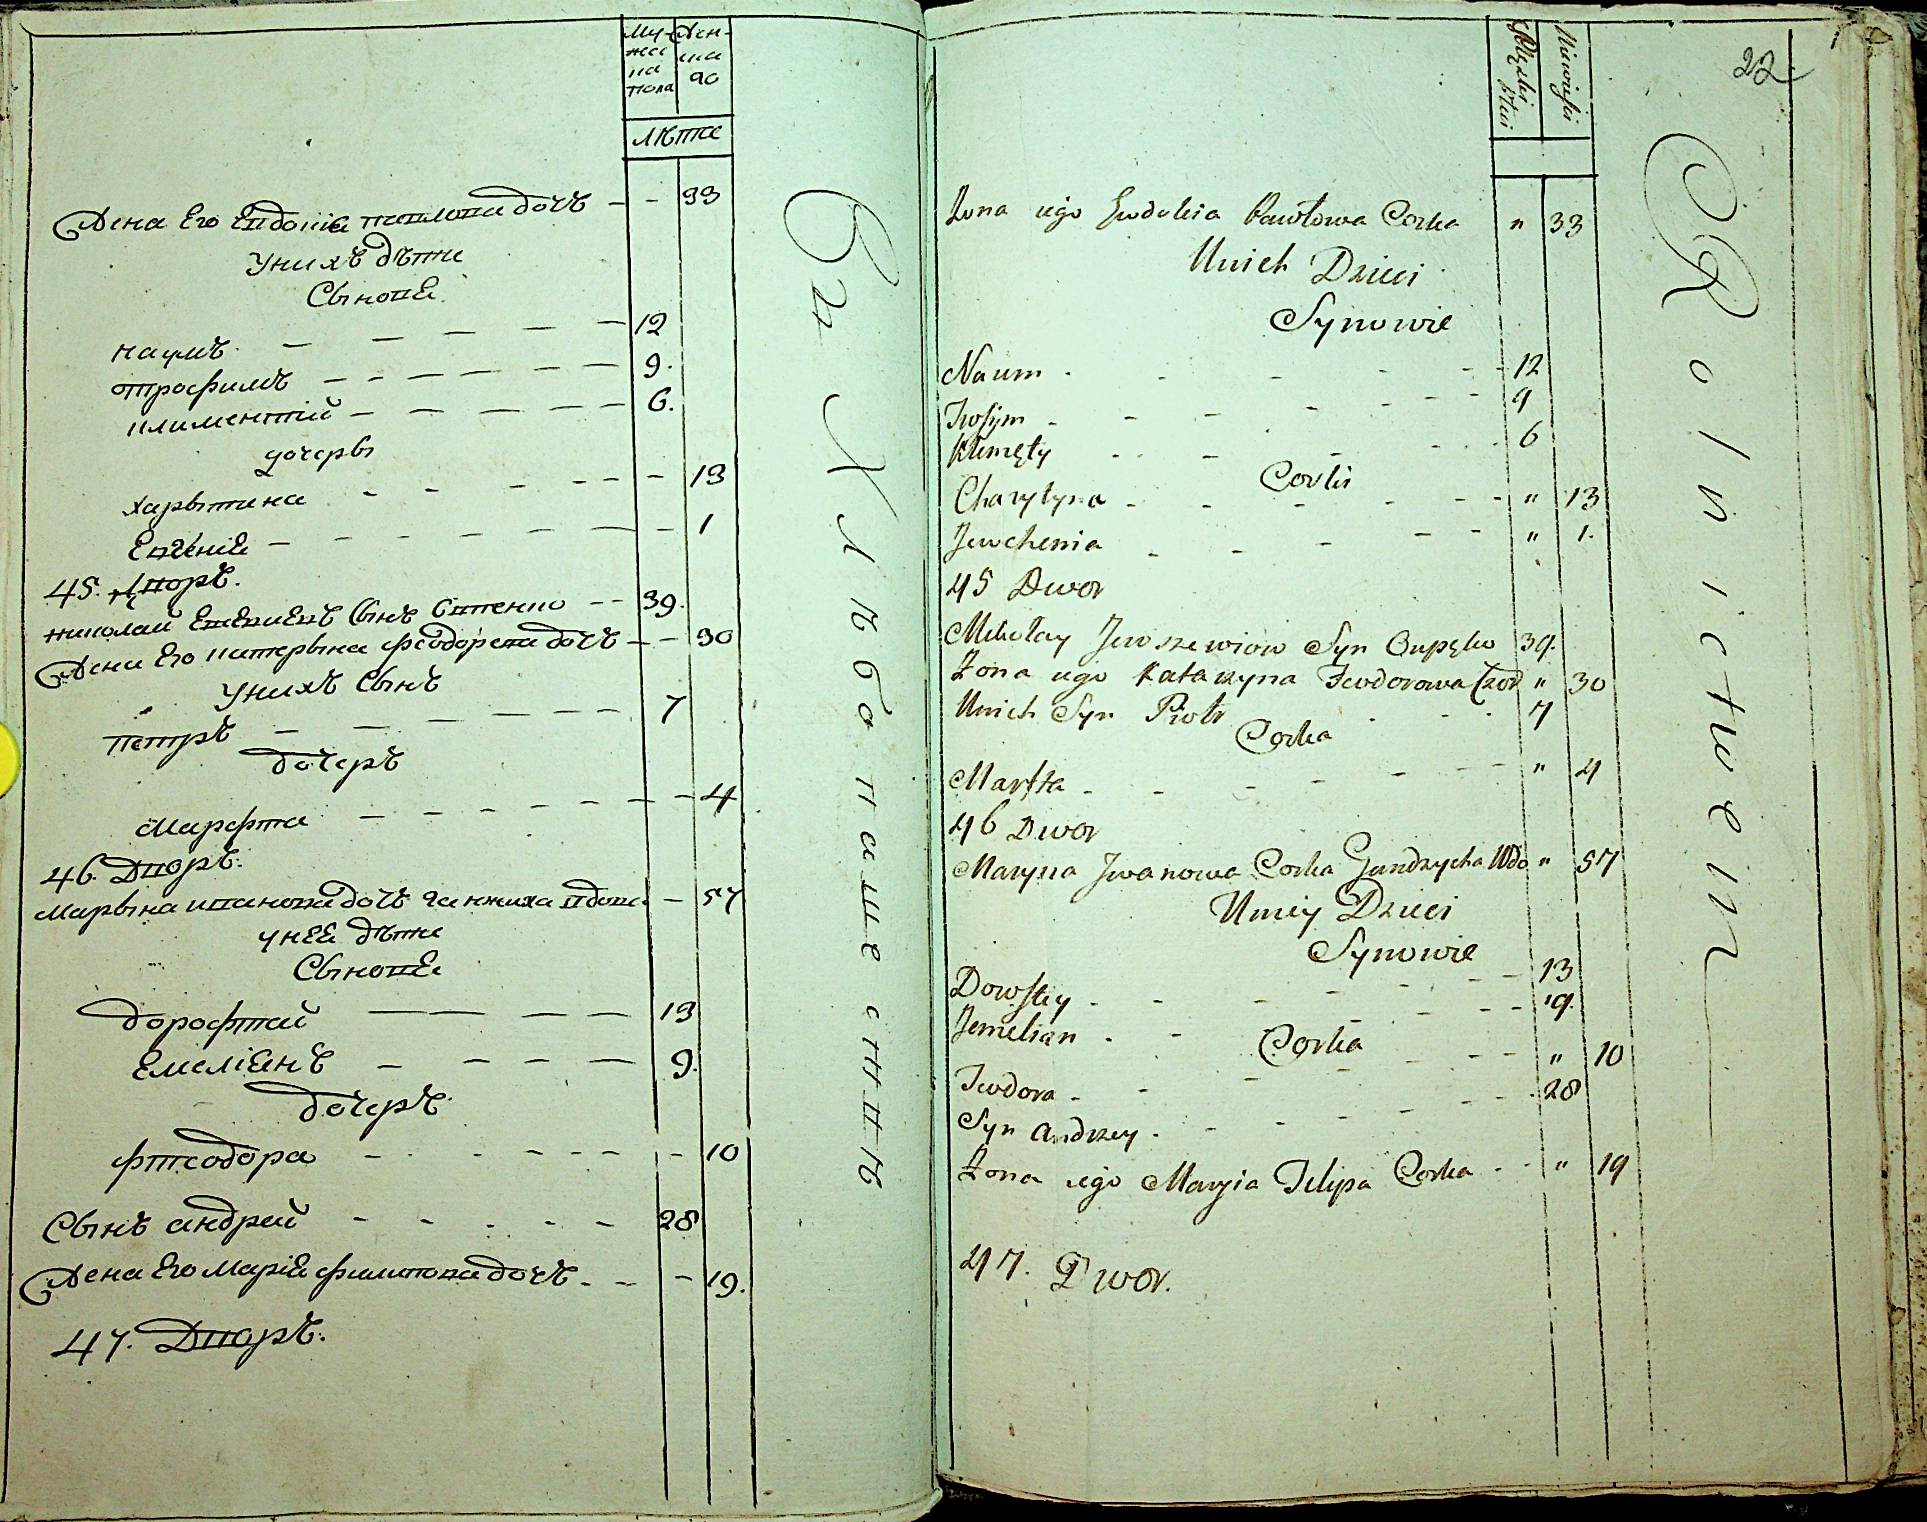 Мужеска пола
Женскаго
лѣта
Жена Его Евдокія павлова дочъ - - 33
Унихъ дѣти
Сыновя
наумъ 12
трофимъ 9.
климентій 6.
дочеры
харытина - 13
Евгенія - 1
45. Дворъ.
николай Сынъ 39.
Жена Его катерына феодорова дочъ - 30
Унихъ Сынъ
петръ 7
дочеръ
Марфта - 4
46. Дворъ.
Марына иванова дочъ ганжиха вдова - 57
унея дѣти
Сыновя
дорофтей 13
Емеліянъ 9.
дочеръ
фтеодора - 10
Сынъ андрей 28
Жена Его Марія филипова дочъ - 19.
47. Дворъ.
Въ Хлѣбопашенствѣ
22
Żona iego Ewdokia Pawłowa Corka " 33
Unich Dzieci
Synowie
Naum 12
Trofym 9
Klimęty 6
Corki
Charytyna " 13
Jewchenia " 1.
45 Dwor
Mikołay Syn 39.
Żona iego Katarzyna Teodorowa Cor " 30
Unich Syn Piotr 7
Corka
Marfta " 4
46 Dwor
Maryna Jwanowa Corka Gandzycha Wdo " 57
Uniey Dzieci
Synowie
Dowftey 13
Jemelian 9.
Corka
Teodora " 10
Syn Andrzey 28
Żona iego Maryia Filipa Corka " 19
47. Dwor.
W Rolnictwein